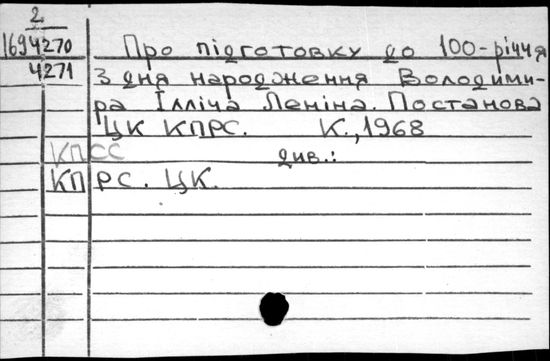 2
1694270 Про підготовку до 100-річчя
4271 З дня народження Володими-
ра Ілліча Леніна. Постанова
ЦК КПРС. К., 1968
КПСС див.:
КПРС. ЦК.